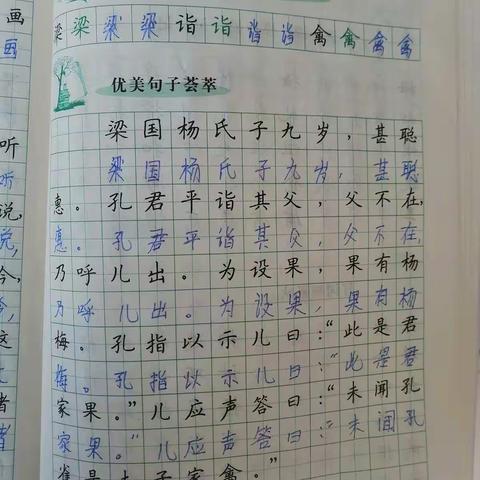 梁 梁 梁 梁 诣 诣 诣 诣 禽 禽 禽 禽
优美句子荟萃
梁国杨氏子九岁，甚聪
梁国杨氏子九岁，甚聪
惠。孔君平诣其父，父不在，
惠。孔君平诣其父，父不在，
乃呼儿出。为设果，果有杨
乃呼儿出。为设果，果有杨
梅。孔指以示儿曰：“此是君
梅。孔指以示儿曰：“此是君
家果。”儿应声答曰：“未闻孔
家果。”儿应声答曰：“未闻孔
雀是夫子家禽。”
画
画
听
听
说，
说，
今，
今，
这
者
者